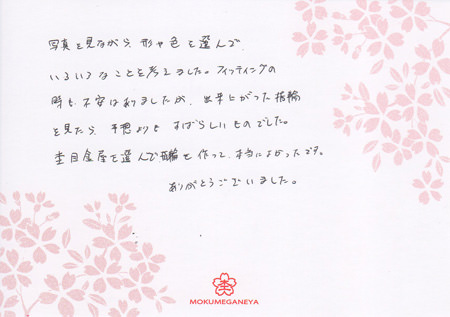 写真を見ながら、形や色を選んで、
いろいろなことを考えました。フィッティングの
時も、不安はありましたが、出来上がった指輪
を見たら、予想よりも すばらしいものでした。
杢目金屋を選んで指輪を作って、本当によかったです。
ありがとうございました。
杢
MOKUMEGANEYA